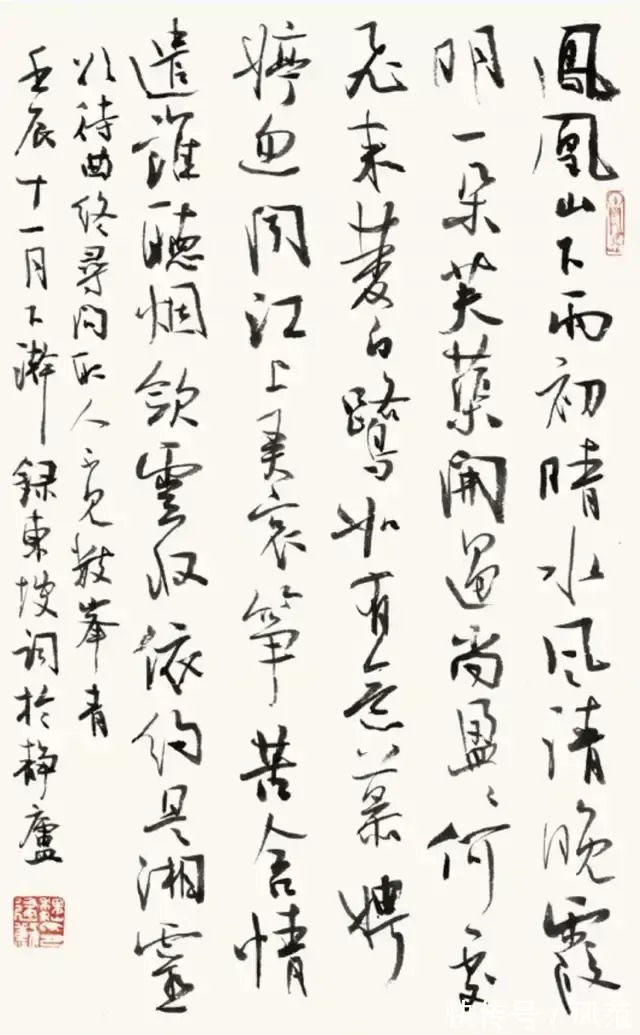 鳳凰山下雨初晴水风清晚霞
明一朵芙蕖開過尚盈〻何處
飛来雙白鷺如有意慕娉
婷忽聞江上弄哀箏苦含情
遣誰聽烟斂雲收依約是湘靈
欲待曲終尋問取人不見數峯青
壬辰十一月下澣錄東坡詞於靜廬
快传号/风范